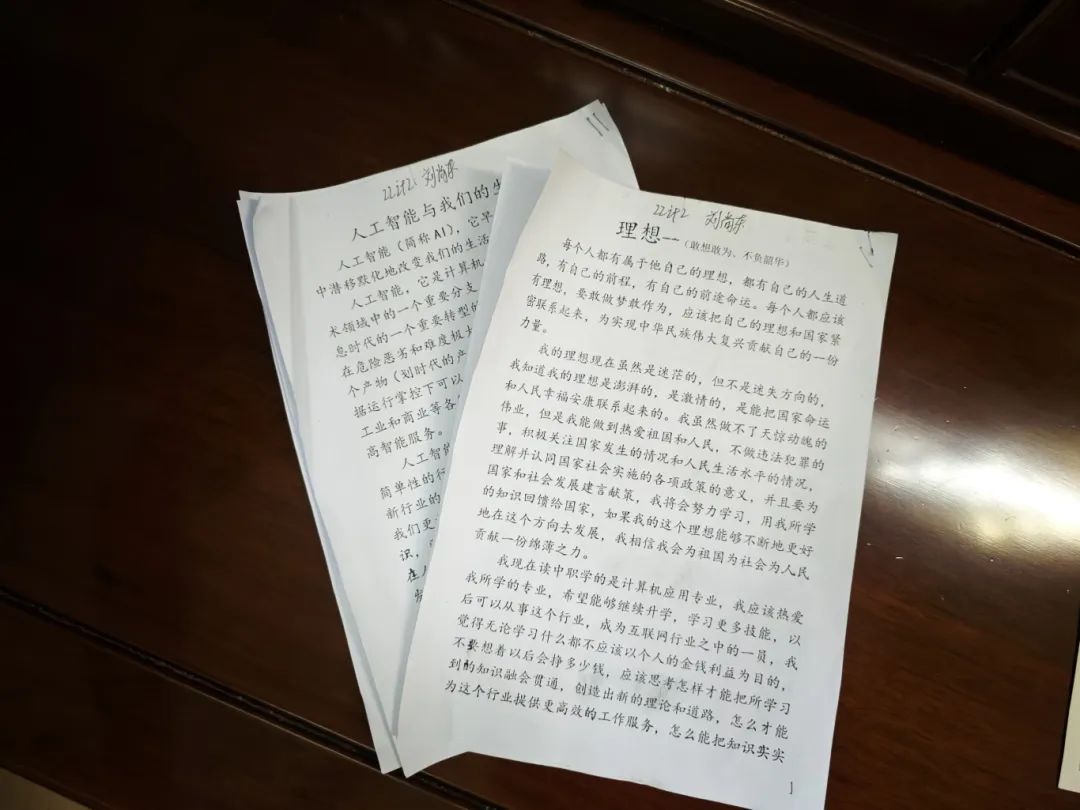 22计2 刘尚东
人工智能与我们的生
人工智能（简称AI），它早
中潜移默化地改变我们的生活
人工智能，它是计算机
术领域中的一个重要分支
息时代的一个重要转型的
在危险恶劣和难度极大
个产物（划时代的产
据运行掌控下可以
工业和商业等各
高智能服务。
人工智能
简单性的行
新行业的
我们更
识，
在
22计2 刘尚东
理想—（敢想敢为、不负韶华）
每个人都有属于他自己的理想，都有自己的人生道
路，有自己的前程，有自己的前途命运。每个人都应该
有理想，要敢做梦敢作为，应该把自己的理想和国家紧
密联系起来，为实现中华民族伟大复兴贡献自己的一份
力量。
我的理想现在虽然是迷茫的，但不是迷失方向的，
我知道我的理想是澎湃的，是激情的，是能把国家命运
和人民幸福安康联系起来的。我虽然做不了天惊动魄的
伟业，但是我能做到热爱祖国和人民，不做违法犯罪的
事，积极关注国家发生的情况和人民生活水平的情况，
理解并认同国家社会实施的各项政策的意义，并且要为
国家和社会发展建言献策，我将会努力学习，用我所学
的知识回馈给国家，如果我的这个理想能够不断地更好
地在这个方向去发展，我相信我会为祖国为社会为人民
贡献一份绵薄之力。
我现在读中职学的是计算机应用专业，我应该热爱
我所学的专业，希望能够继续升学，学习更多技能，以
后可以从事这个行业，成为互联网行业之中的一员，我
觉得无论学习什么都不应该以个人的金钱利益为目的，
不要想着以后会挣多少钱，应该思考怎样才能把所学习
到的知识融会贯通，创造出新的理论和道路，怎么才能
为这个行业提供更高效的工作服务，怎么能把知识实实
1